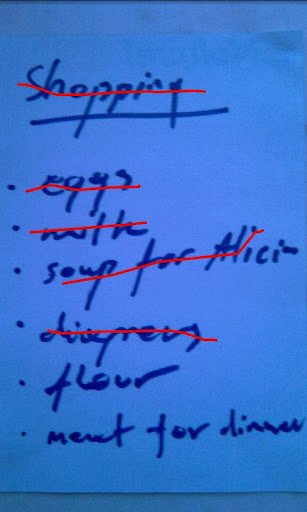 Shopping
· eggs
· milk
· soup for Alicia
· diapers
· flour
· meat for dinner